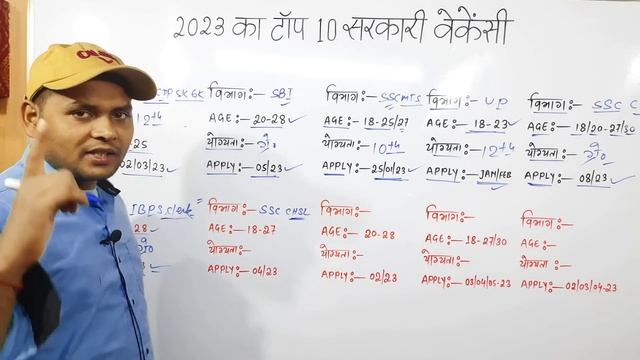 2023 का टॉप 10 सरकारी वेकेंसी
SK GK
12th
25
02/03/23
विभाग:- SBI
AGE:- 20-28
योग्यता:- ग्रे०
APPLY:- 05/23
विभाग:- SSC MTS
AGE:- 18-25/27
योग्यता:- 10th
APPLY:- 25/01/23
विभाग:- UP
AGE:- 18-23
योग्यता:- 12th
APPLY:- JAN/FEB
विभाग:- SSC C
AGE:- 18/20-27/30
योग्यता:- ग्रे०
APPLY:- 08/23
IBPS Clerk
28
ग्रे०
विभाग:- SSC CHSL
AGE:- 18-27
योग्यता:-
APPLY:- 04/23
विभाग:-
AGE:- 20-28
योग्यता:-
APPLY:- 02/23
विभाग:-
AGE:- 18-27/30
योग्यता:-
APPLY:- 03/04/05-23
विभाग:-
AGE:-
योग्यता:-
APPLY:- 02/03/04-23